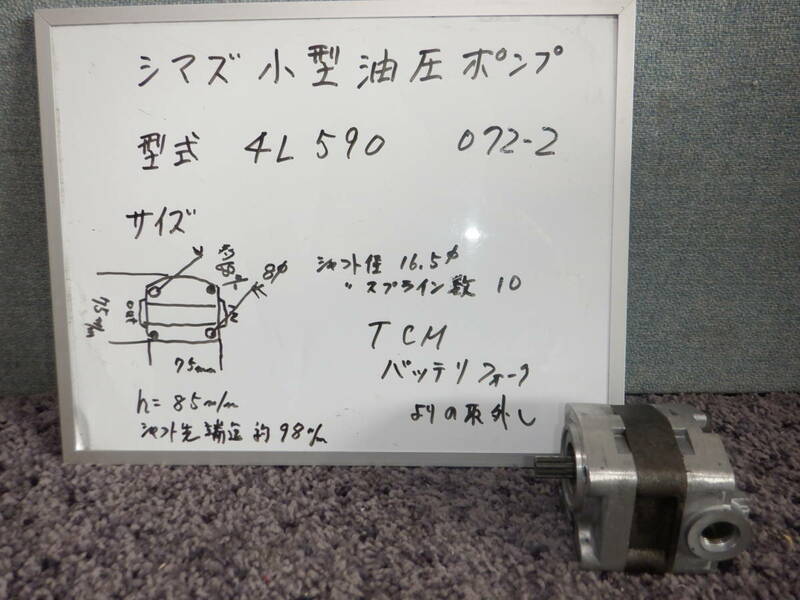 シマズ 小型油圧ポンプ
型式 4L590 072-2
サイズ
8φ
シャフト径 16.5φ
〃 スプライン数 10
75m/m
out
75mm
TCM
バッテリフォーク
よりの取外し
h=85m/m
シャフト先端迄約98m/m